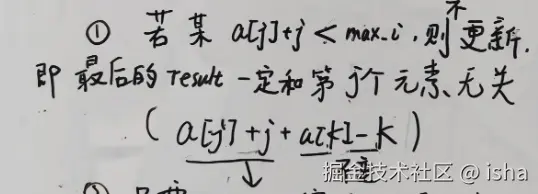 ① 若某 a[j]+j < max_i, 则不更新.
即 最后的 result 一定和第 j 个元素无关
( a[j]+j + a[k]-k )
不变
掘金技术社区 @ isha